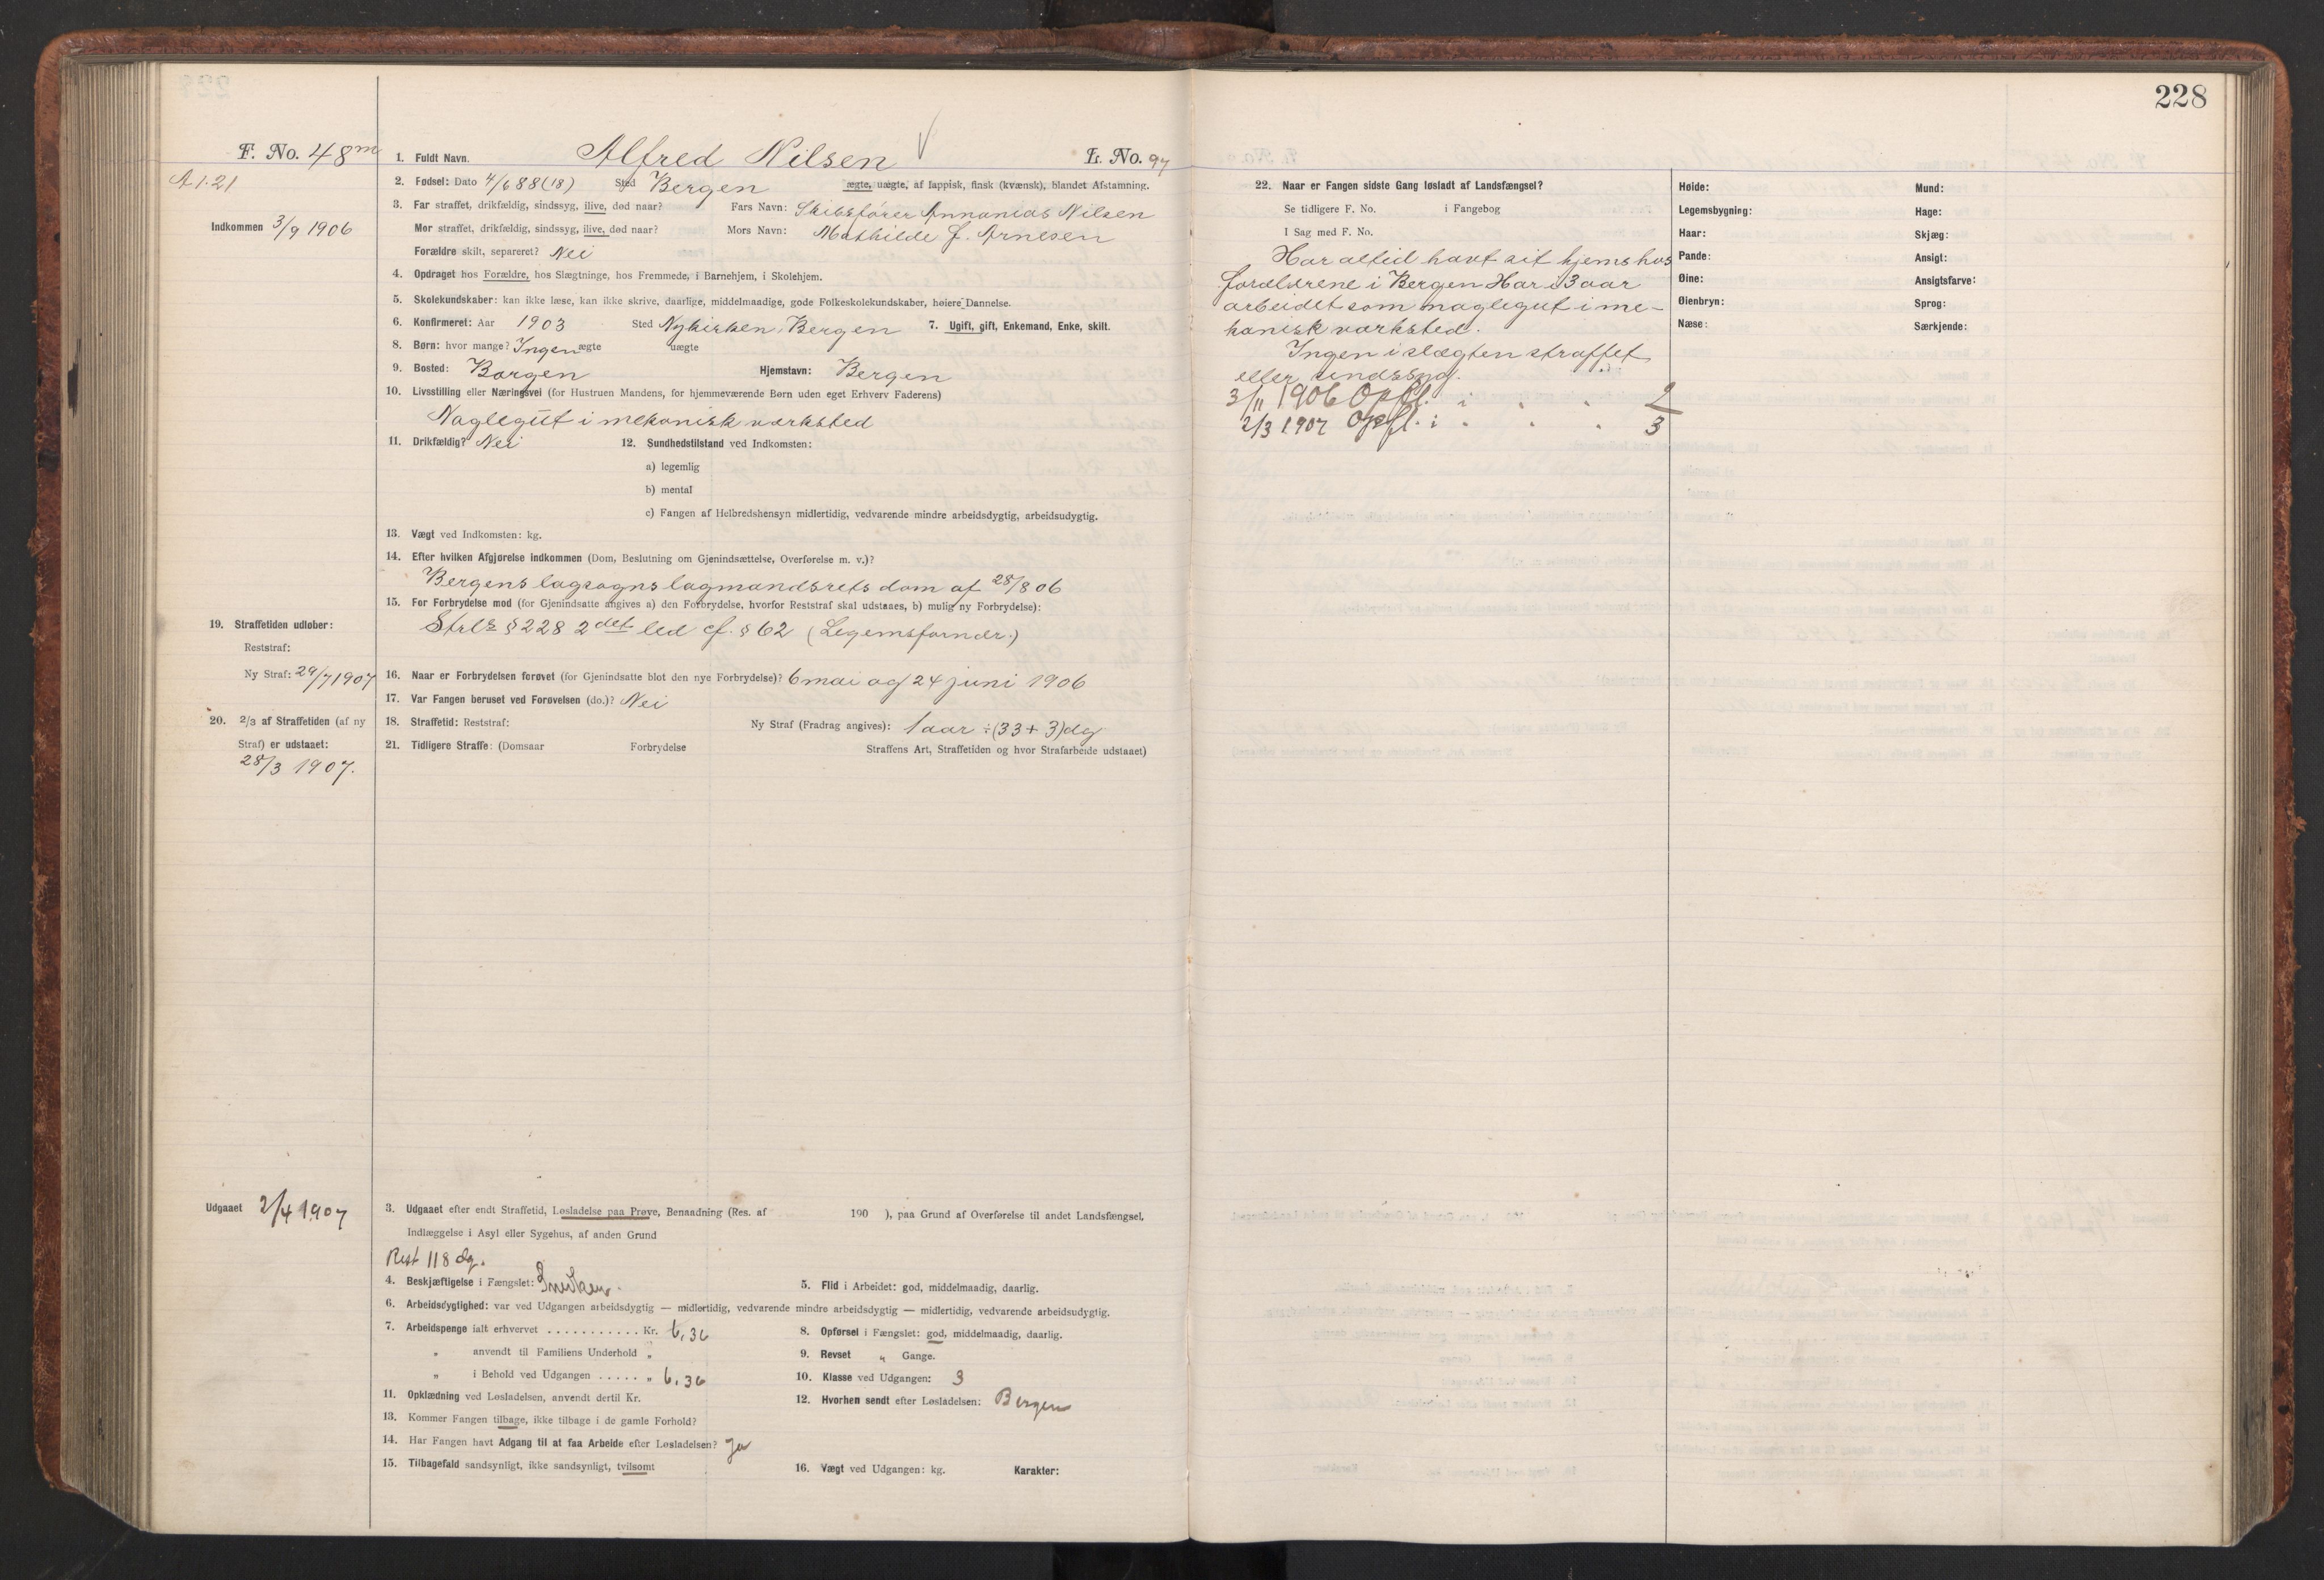 228
F. No. 48m
1. Fuldt Navn. Alfred Nilsen L. No. 97
A 1.21
2. Fødsel: Dato 4/6 88 (18) Sted Bergen ægte, uægte, af lappisk, finsk (kvænsk), blandet Afstamning.
Indkommen 3/9 1906
3. Far straffet, drikfældig, sindssyg, ilive, død naar? Fars Navn: Skibsfører Annanias Nilsen
Mor straffet, drikfældig, sindssyg, ilive, død naar? Mors Navn: Mathilde f. Arnesen
Forældre skilt, separeret? Nei
4. Opdraget hos Forældre, hos Slægtninge, hos Fremmede, i Barnehjem, i Skolehjem.
5. Skolekundskaber: kan ikke læse, kan ikke skrive, daarlige, middelmaadige, gode Folkeskolekundskaber, høiere Dannelse.
6. Konfirmeret: Aar 1903 Sted Nykirken, Bergen 7. Ugift, gift, Enkemand, Enke, skilt.
8. Børn: hvor mange? Ingen ægte uægte
9. Bosted: Bergen Hjemstavn: Bergen
10. Livsstilling eller Næringsvei (for Hustruen Mandens, for hjemmeværende Børn uden eget Erhverv Faderens)
Naglegut i mekanisk værksted
11. Drikfældig? Nei 12. Sundhedstilstand ved Indkomsten:
a) legemlig
b) mental
c) Fangen af Helbredshensyn midlertidig, vedvarende mindre arbeidsdygtig, arbeidsudygtig.
13. Vægt ved Indkomsten: kg.
14. Efter hvilken Afgjørelse indkommen (Dom, Beslutning om Gjenindsættelse, Overførelse m. v.)?
Bergens lagsogns lagmandsrets dom af 28/8 06
15. For Forbrydelse mod (for Gjenindsatte angives a) den Forbrydelse, hvorfor Reststraf skal udstaaes, b) mulig ny Forbrydelse):
Strls § 228 2det led cf. § 62 (Legemsfornær.)
19. Straffetiden udløber:
Reststraf:
Ny Straf: 29/7 1907
16. Naar er Forbrydelsen forøvet (for Gjenindsatte blot den nye Forbrydelse)? 6 mai og 24 juni 1906
17. Var Fangen beruset ved Forøvelsen (do.)? Nei
20. 2/3 af Straffetiden (af ny
Straf) er udstaaet:
28/3 1907.
18. Straffetid: Reststraf: Ny Straf (Fradrag angives): 1 aar ÷ (33 + 3) dg
21. Tidligere Straffe: (Domsaar Forbrydelse Straffens Art, Straffetiden og hvor Strafarbeide udstaaet)
Udgaaet 2/4 1907
3. Udgaaet efter endt Straffetid, Løsladelse paa Prøve, Benaadning (Res. af 190 ), paa Grund af Overførelse til andet Landsfængsel,
Indlæggelse i Asyl eller Sygehus, af anden Grund
Rest 118 dg.
4. Beskjæftigelse i Fængslet: Snekker. 5. Flid i Arbeidet: god, middelmaadig, daarlig.
6. Arbeidsdygtighed: var ved Udgangen arbeidsdygtig — midlertidig, vedvarende mindre arbeidsdygtig — midlertidig, vedvarende arbeidsudygtig.
7. Arbeidspenge ialt erhvervet . . . . . . . . . . . Kr. 6,36 8. Opførsel i Fængslet: god, middelmaadig, daarlig.
„ anvendt til Familiens Underhold „ 9. Revset „ Gange.
„ i Behold ved Udgangen . . . . . „ 6,36 10. Klasse ved Udgangen: 3
11. Opklædning ved Løsladelsen, anvendt dertil Kr. 12. Hvorhen sendt efter Løsladelsen: Bergen
13. Kommer Fangen tilbage, ikke tilbage i de gamle Forhold?
14. Har Fangen havt Adgang til at faa Arbeide efter Løsladelsen? Ja
15. Tilbagefald sandsynligt, ikke sandsynligt, tvilsomt 16. Vægt ved Udgangen: kg. Karakter:
22. Naar er Fangen sidste Gang løsladt af Landsfængsel?
Se tidligere F. No. i Fangebog
I Sag med F. No.
Har altid havt sit hjem hos
forældrene i Bergen Har i 3 aar
arbeidet som naglegut i me-
kanisk værksted.
Ingen i slægten straffet
eller sindssyg.
3/11 1906 Opfl. i " " 2
2/3 1907 Opfl. i " " " 3
Høide: Mund:
Legemsbygning: Hage:
Haar: Skjæg:
Pande: Ansigt:
Øine: Ansigtsfarve:
Øienbryn: Sprog:
Næse: Særkjende: